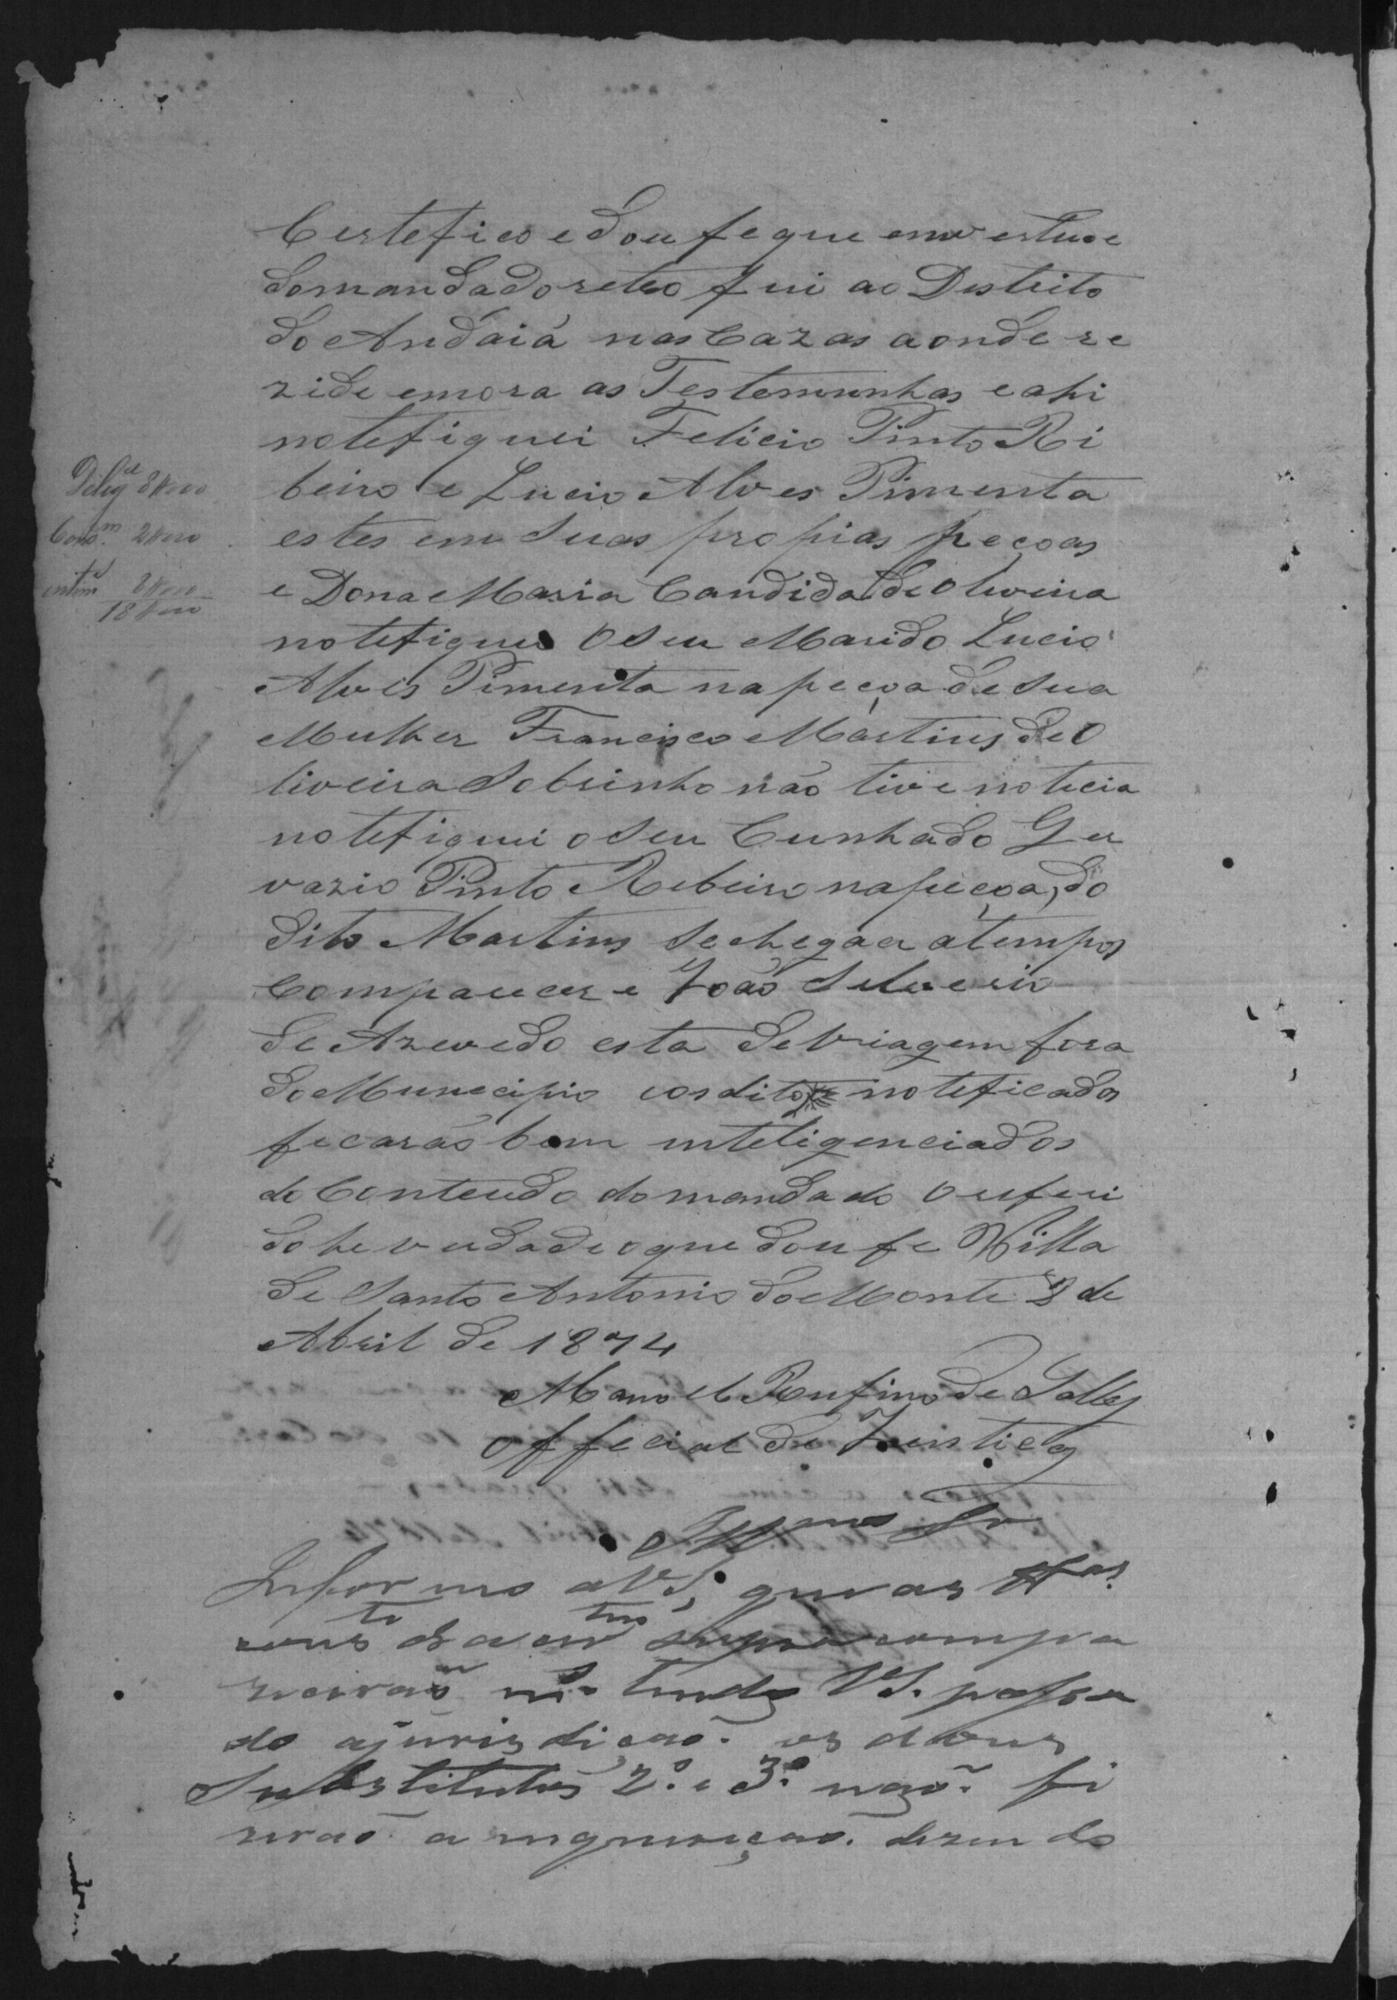 Certefico e dou fe que em vertude
do mandado retro fui ao Destrito
do Andaiá nas Cazas aonde re
zide emora as Testemunhas e ahi
notefiquei Felicio Pinto Ri
beiro e Lucio Alves Pimenta
estes em suas propias peçoas
e Dona Maria Candida de Oliveira
notefiquei o seu Marido Lucio
Alves Pimenta na peçoa de sua
Mulher Francisco Martins de O
liveira Sobrinho não tive noticia
notefiquei o seu Cunhado Ger
vazio Pinto Rebeiro na peçoa, do
dito Martins se chegar a tempos
Comparecer e João Silverio
de Azevedo esta de Viagem fora
do Municipio e os ditos noteficados
ficarão bem inteligenciados
do Conteudo do mandado o referi
do he verdade o que dou fe Villa
de Santo Antonio do Monte 8 de
Abril de 1874
Manoel Rufino de Salles
Offecial de Justiça
Dilig.el 8
2
18
Illmo Sr
Informo a V.S. que as
supra compa
recerão
V.S. passa
do a jurisdição. os
Substitutos 2º e 3º não fi
zerão a inquirição. dizendo